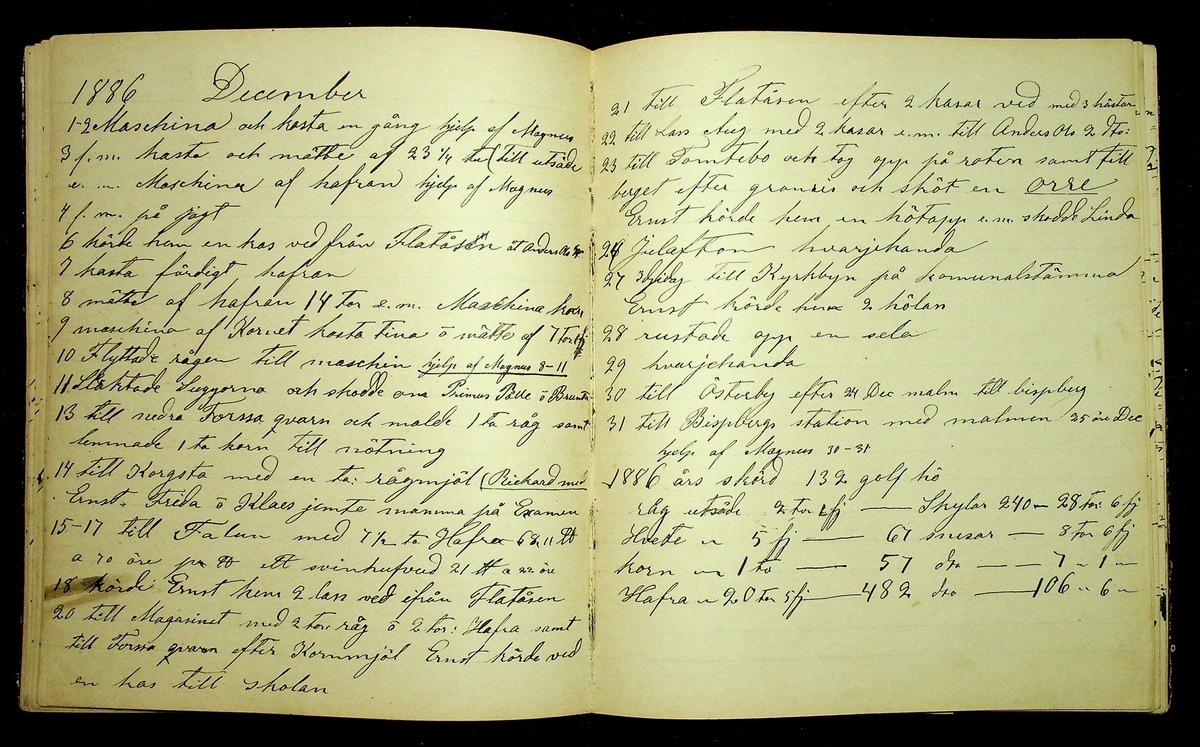 1886 December
1-2 Maschina och kasta en gång hjelp af Magnus
3 f. m. kasta och mätte af 23 1/4 ta (till utsäde
e. m. Maschina af hafran hjelp af Magnus
4 f. m. på jagt
6 körde hem en kas ved från Flatåsen åt Anders Ols
7 kasta färdigt hafran
8 mätte af hafran 14 tor e. m. Maschina korn
9 maschina af Kornet kasta tina ö mätte af 7 tor
10 Flyttade rågen till maschin hjelp af Magnus 8-11
11 Slaktade Suggorna och skodde ena Primus Pålle ö Brunte
13 till nedra Forssa qvarn och malde 1 ta råg samt
lemnade 1 ta korn till nötning
14 till Korgsta med en ta: rågmjöl (Rickard med
Ernst. Frida ö Klaes jemte mamma på Examen
15-17 till Falun med 7 1/2 ta Hafra
a 70 öre pr ℔ ett svinhufvud 21 ℔ a 22 öre
18 körde Ernst hem 2 lass ved ifrån Flatåsen
20 till Magasinet med 2 tor: råg ö 2 tor: Hafra samt
till Forssa qvarn efter Kornmjöl Ernst körde ved
en kas till skolan
21 till Flatåsen efter 2 kasar ved med 3 hästar
22 till Lars Aug med 2 kasar e. m. till Anders Ols 2 dto:
23 till Tomtebo och tog opp på roten samt till
berget efter granris och sköt en orre
Ernst körde hem en hötapp e. m. skodde Linda
24 Julafton hvarjehanda
27 3djedag till Kyrkbyn på komunalstämma
Ernst körde hem 2 hölan
28 rustade opp en sela
29 hvarjehanda
30 till Österby efter 24 Dec malm till bispberg
31 till Bispbergs station med malmen 25 öre Dec
hjelp af Magnus 30-31
1886 års skörd 132 golf hö
Råg utsäde 2 tor 1 fj — Skylar 240 — 28 tor: 6 fj
Hvete " 5 fj — 67 snesar — 8 tor 6 fj
korn " 1 ta — 57 dto — 7 " 1 "
Hafra " 20 tor 5 fj — 482 dto — 106 " 6 "